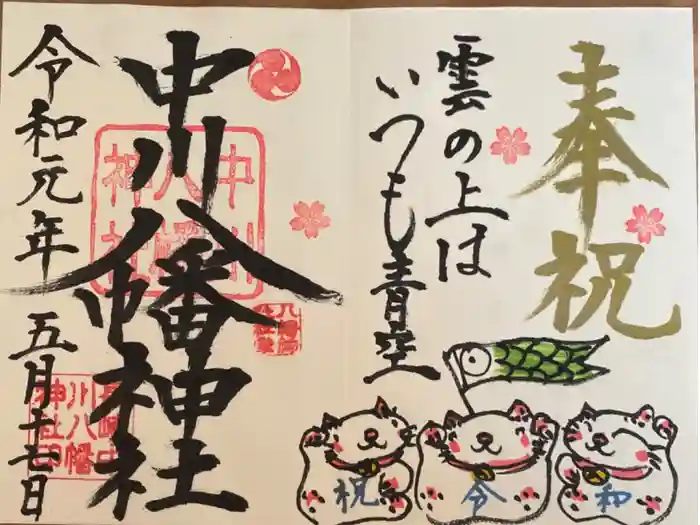 奉祝
雲の上は
いつも青空
中川八幡神社
令和元年 五月十七日
祝
令
和
中川
八幡
神社
川八幡
神社印